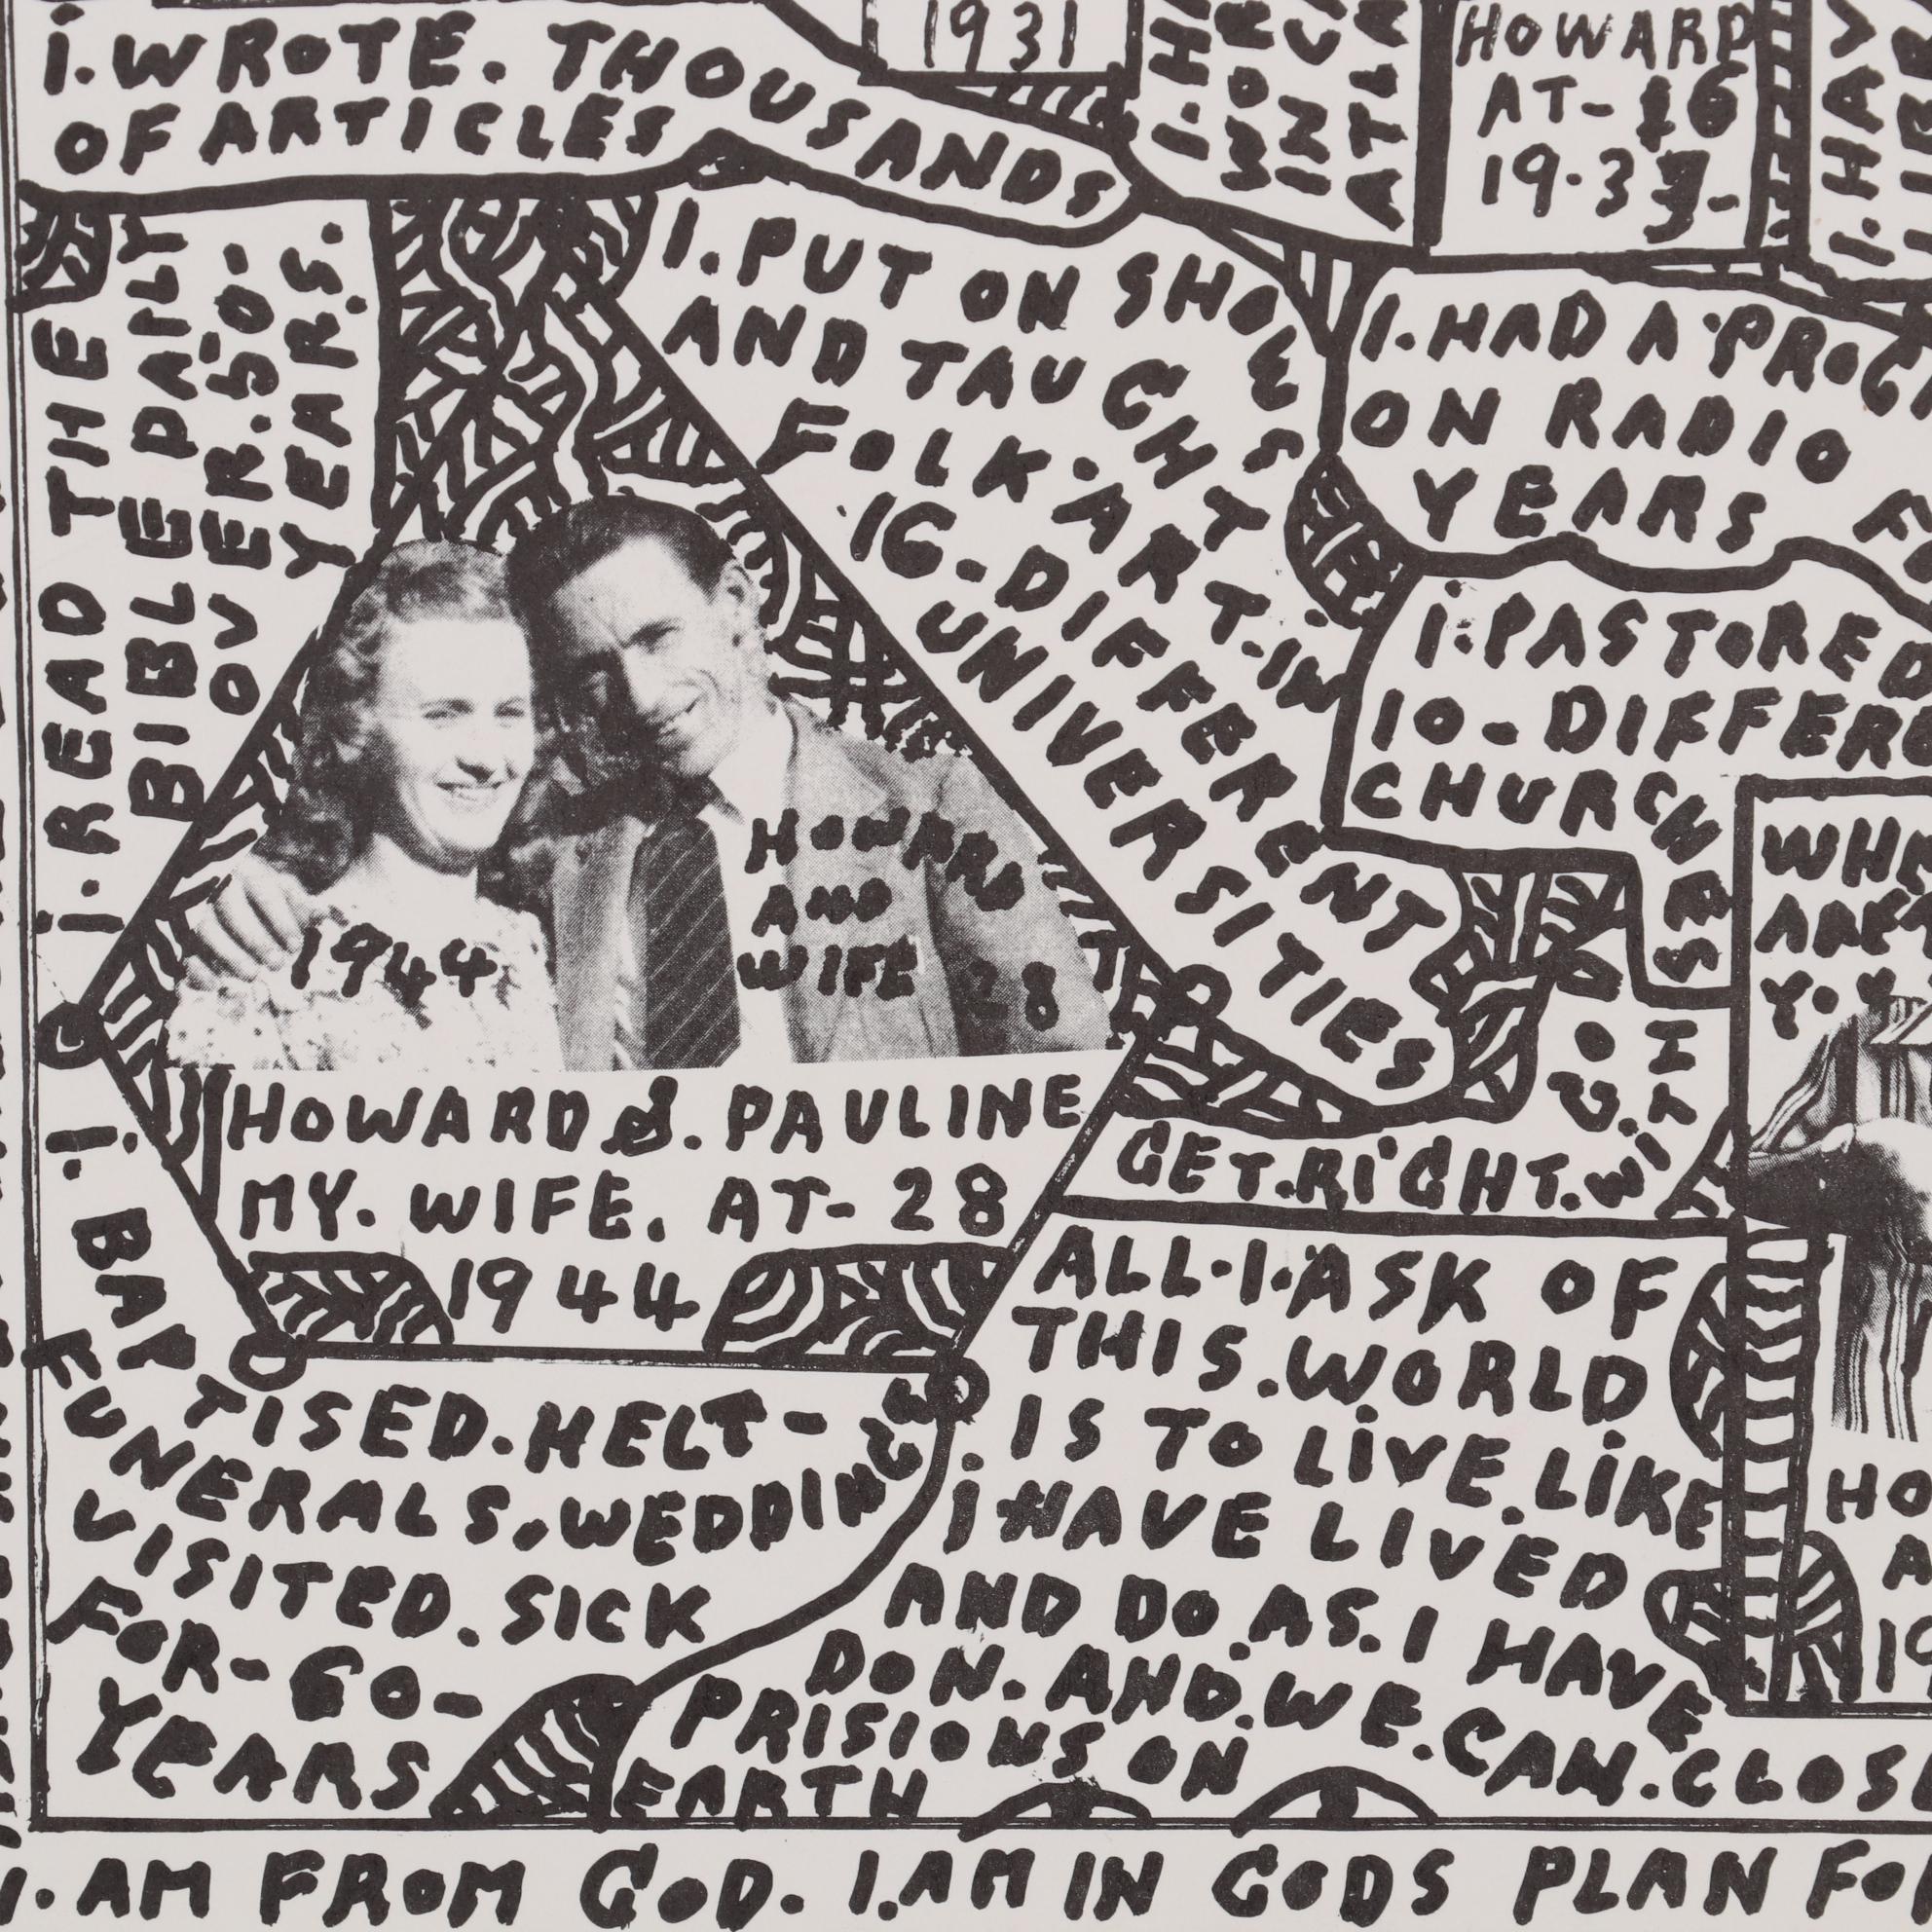 I. WROTE. THOUSANDS
OF ARTICLES
1931
HOWARD
AT-16
19.33-
I. READ THE
BIBLE DAILY
OVER. 50.
YEARS.
I. PUT ON SHOWS
AND TAUGHT
FOLK. ART. IN
16-DIFFERENT
UNIVERSITIES
I. HAD A PROG
ON RADIO
YEARS
I. PASTORED
10-DIFFERE
CHURCHES
HOWARD
AND
WIFE 28
1944
HOWARD &. PAULINE
MY. WIFE. AT-28
1944
GET. RIGHT. WITH
I. BAP
TISED. HELT-
FUNERALS. WEDDINGS
VISITED. SICK
FOR-60-
YEARS
ALL. I. ASK OF
THIS. WORLD
IS TO LIVE. LIKE
I HAVE LIVED
AND DO. AS. I HAVE
DON. AND. WE. CAN. CLOSE
PRISIONS ON
EARTH
I. AM FROM GOD. I. AM IN GODS PLAN FOR